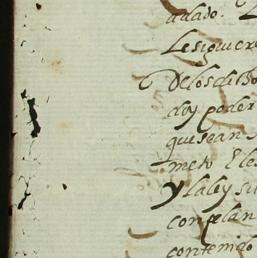 adado. L
Lesiquier
Delosdicho
doy poder
quesean
meto Eles
y laley su
conpelan
contenido